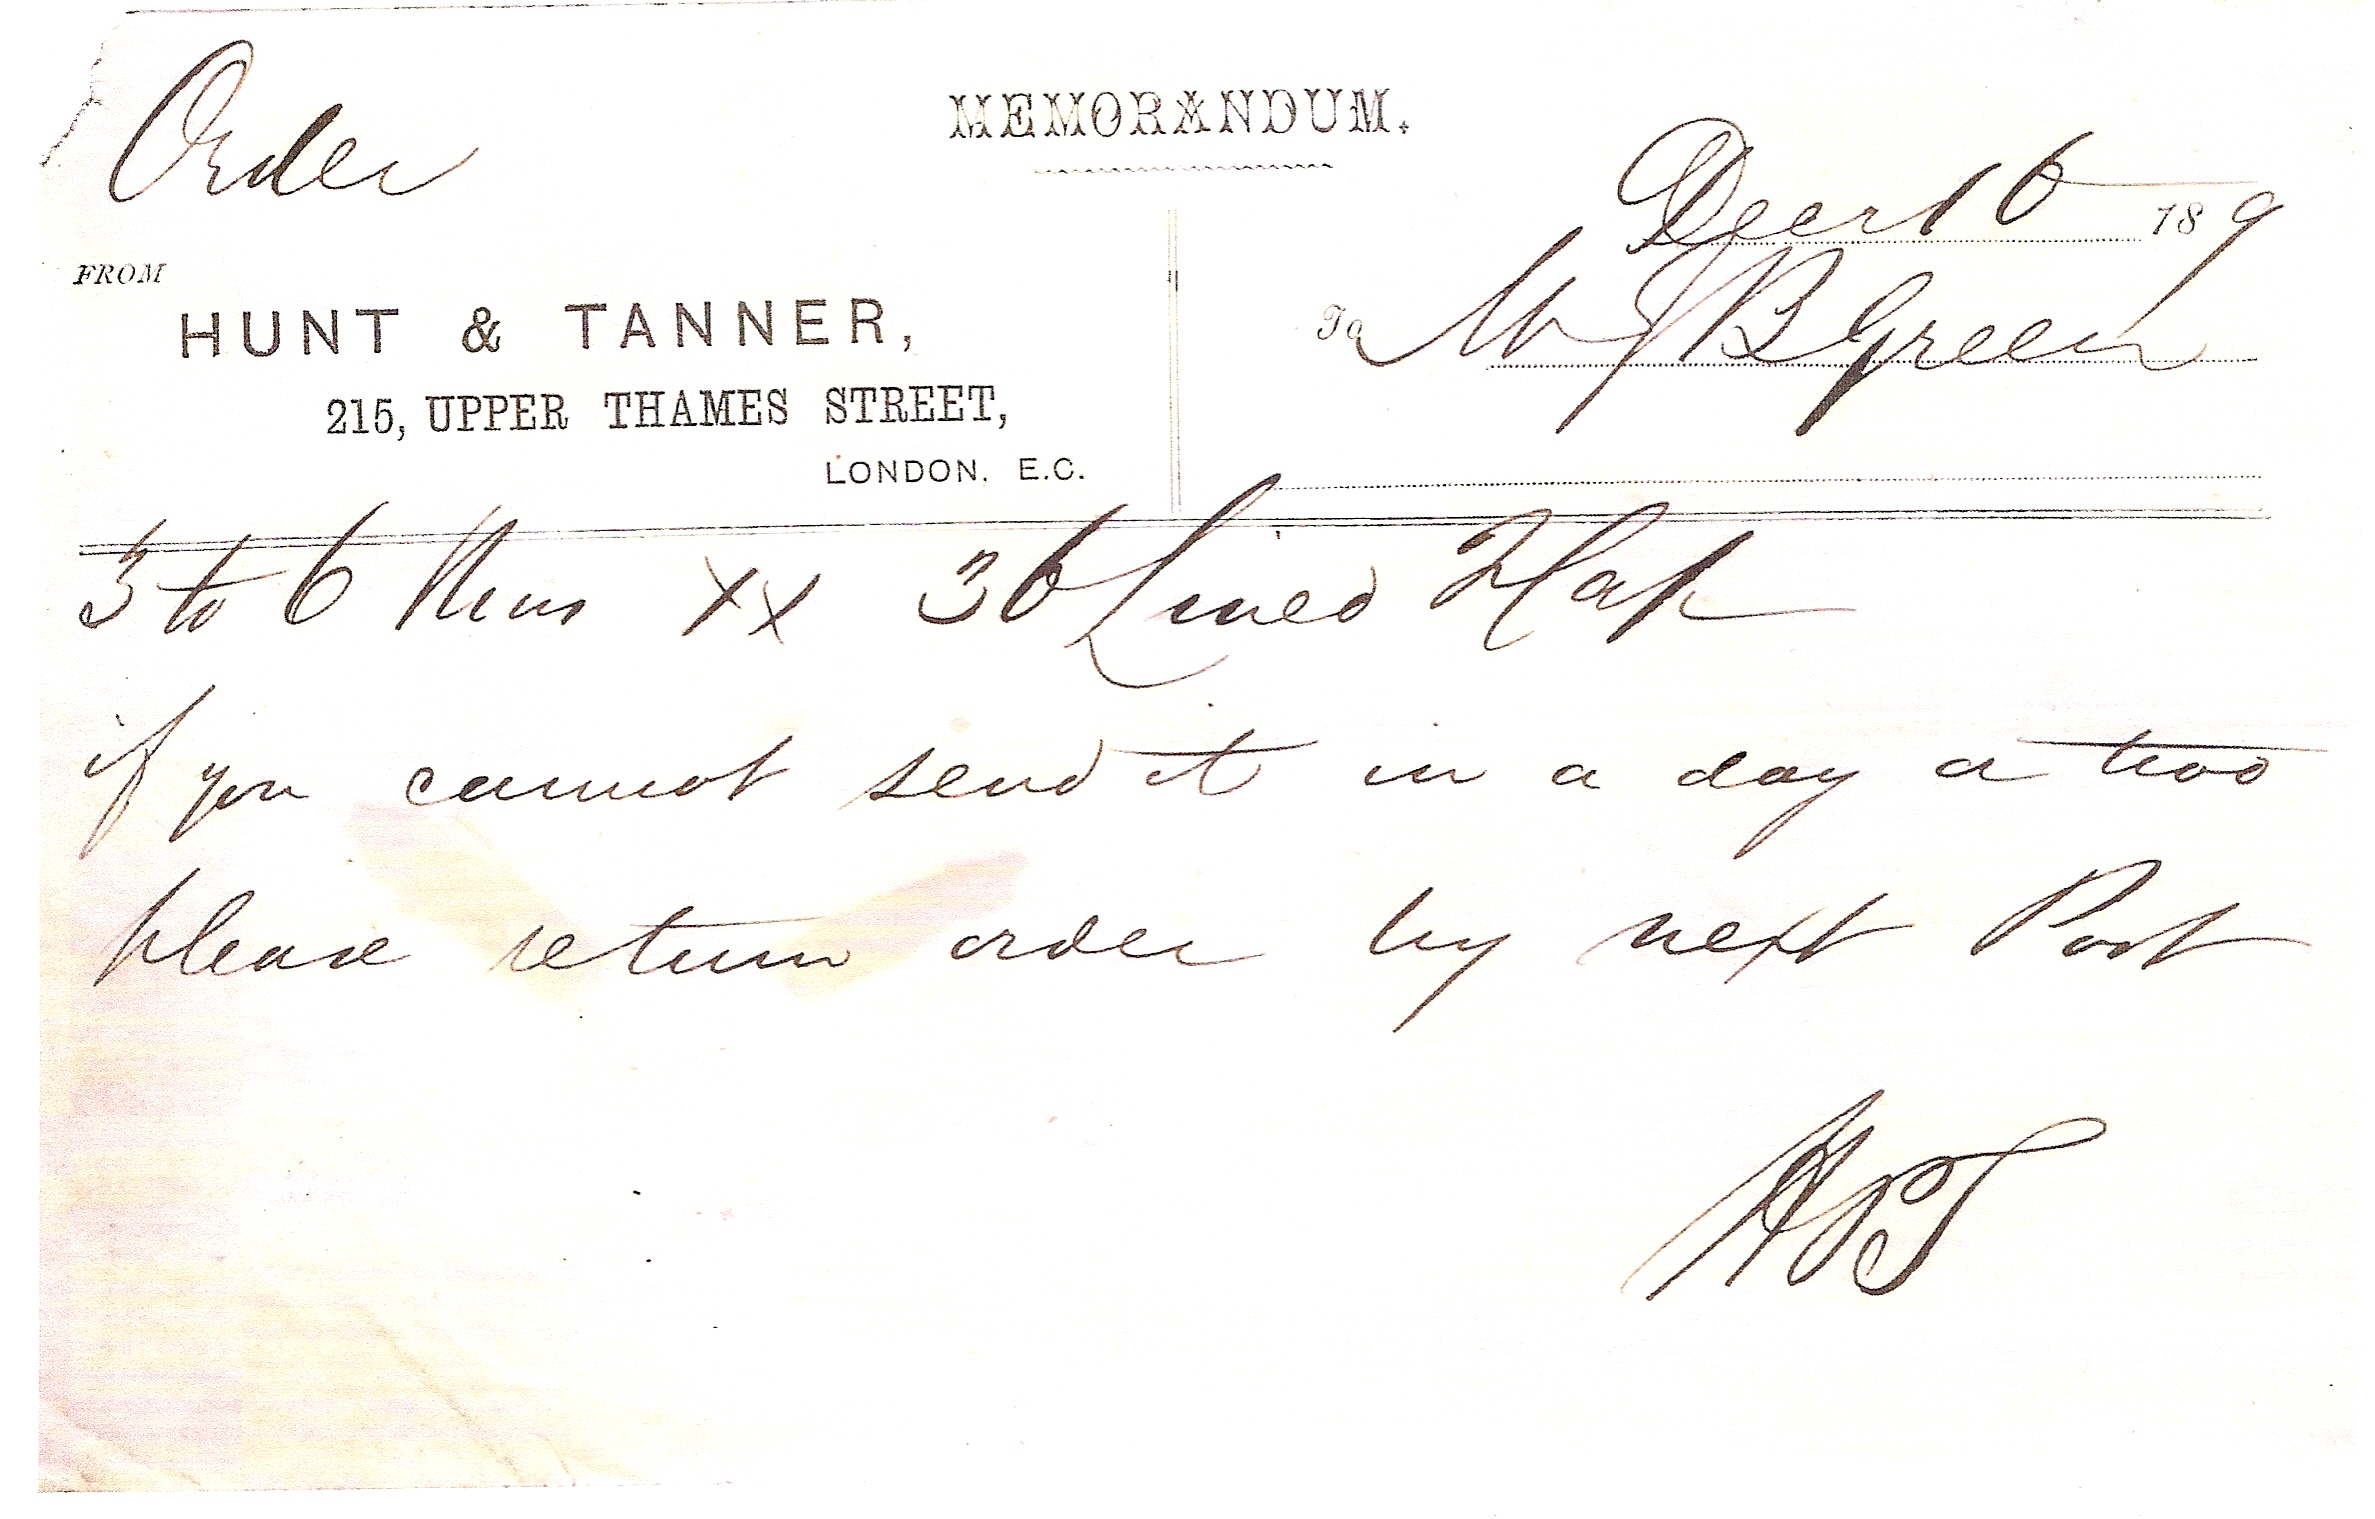 Order
MEMORANDUM.
Decr 16 189
FROM
HUNT & TANNER,
215, UPPER THAMES STREET,
LONDON. E.C.
To Mr J B Green
3 to 6 Rms xx 36 Lined Flat
if you cannot send it in a day or two
please return order by next Post
H&T